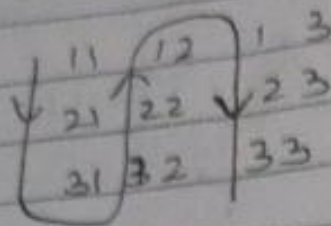 11 12 13
21 22 23
31 32 33